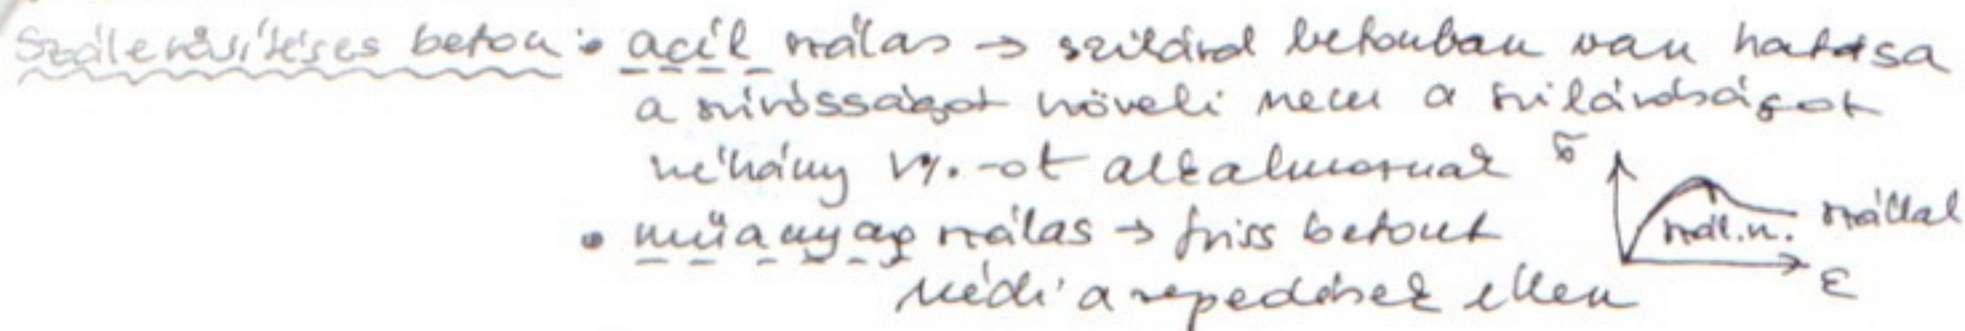 Szálerősítéses beton: • acél szálas → szilárd betonban van hatása
a szívósságot növeli nem a szilárdságot
néhány V%-ot alkalmaznak
• műanyag szálas → friss betont
védi a repedések ellen
σ
szál.n. szállal
ε